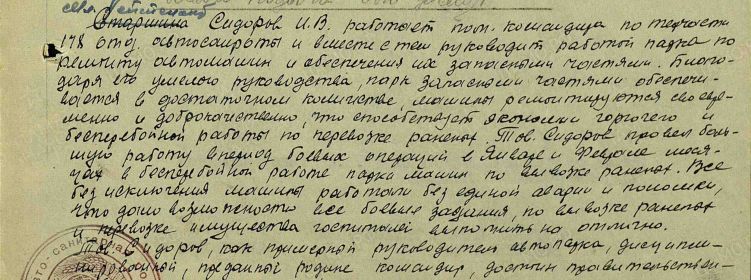 мл. лейтенант
Старшина Сидоров И.В. работает пом. командира по техчасти
178 отд. автосанроты и вместе с тем руководит работой парка по
ремонту автомашин и обеспечения их запасными частями. Благо-
даря его умелого руководства, парк запасными частями обеспечи-
вается в достаточном количестве, машины ремонтируются своевре-
менно и доброкачественно, что способствует экономии горючего и
бесперебойной работы по перевозке раненых. Тов. Сидоров провел боль-
шую работу в период боевых операций в Январе и Феврале меся-
цах в бесперебойной работе парка машин по вывозке раненых. Все
без исключения машины работали без единой аварии и поломки,
что дало возможность все боевые задания, по вывозке раненых
и перевозке имущества госпиталей выполнить на отлично.
Тов. Сидоров, как примерный руководитель автопарка, дисципли-
нированный, преданный родине командир, достоин правительствен-
то-санитарна